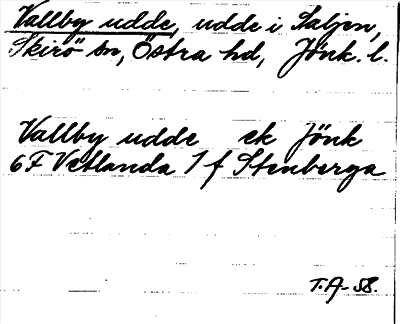 Vallby udde, udde i Saljen,
Skirö sn, Östra hd, Jönk. l.
Vallby udde ek Jönk
6F Vetlanda 1 f Stenberga
T.A-58.